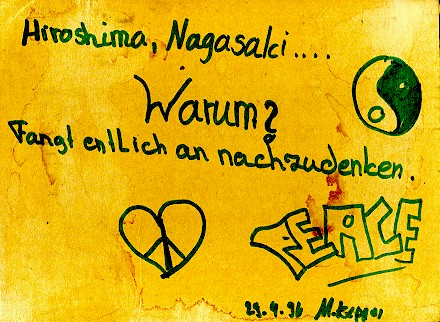 Hiroshima, Nagasaki....
Warum?
Fangt entlich an nachzudenken.
PEACE
29.4.96